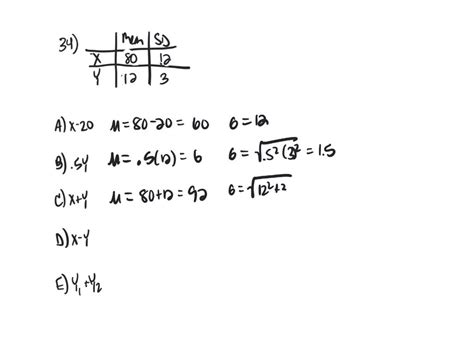 34)
Mean SD
X 80 12
Y 12 3
A) X-20 μ = 80-20 = 60 σ = 12
B) .5Y μ = .5(12) = 6 σ = √.5²(3)² = 1.5
C) X+Y μ = 80+12 = 92 σ = √12²+2
D) X-Y
E) Y₁+Y₂